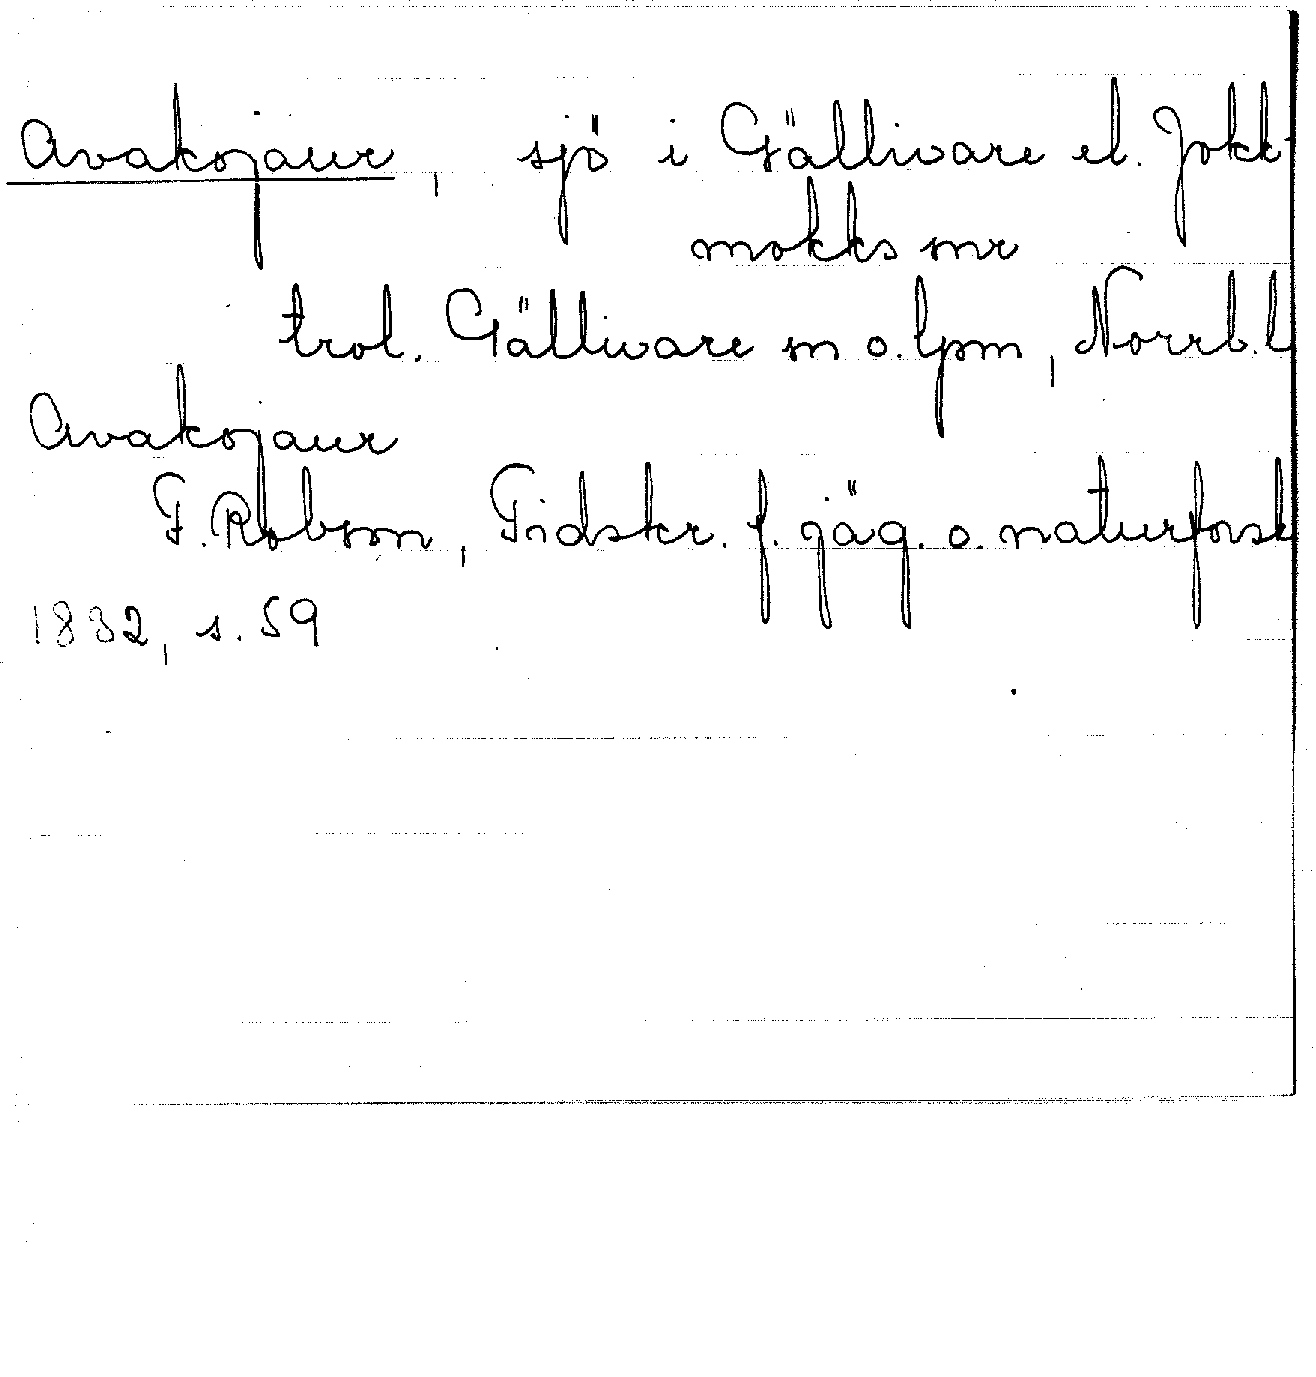 Avakojaur, sjö i Gällivare el. Jokk-
mokks snr
trol. Gällivare sn o. lpm, Norrb. l
Avakojaur
F. Robson, Tidskr. f. jäg. o. naturforsk
1832, s. 59